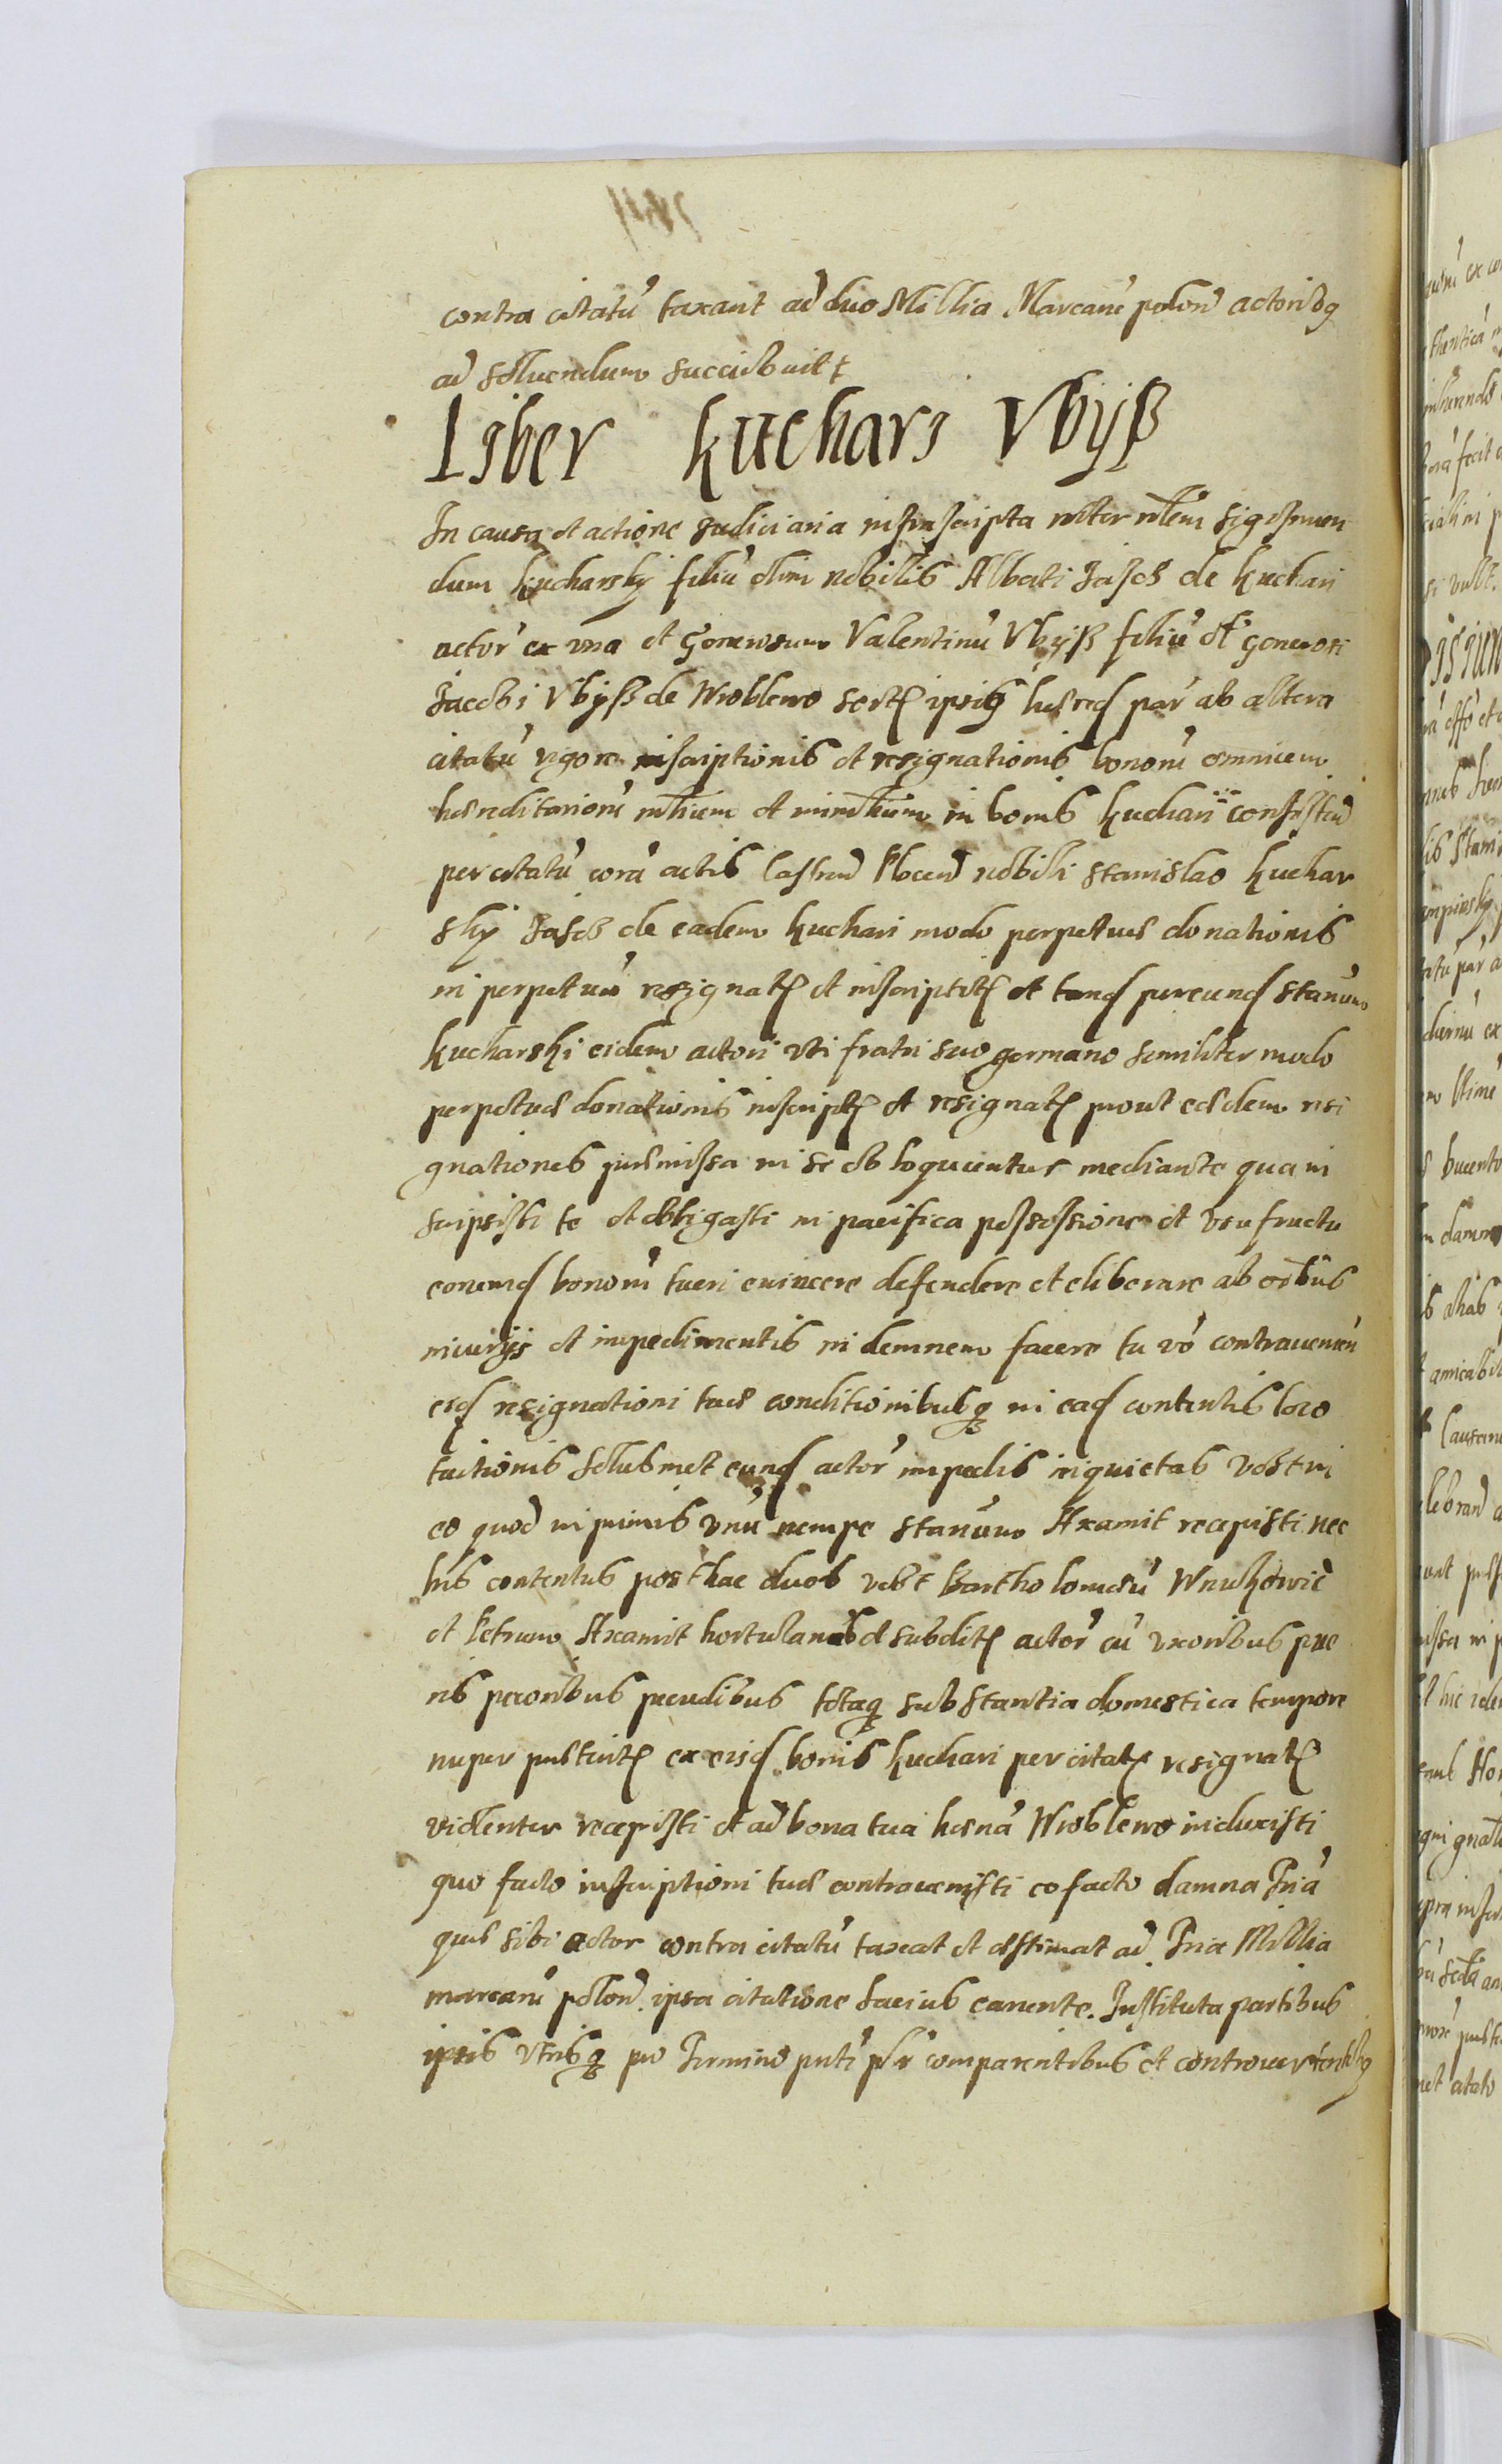 contra citatū taxant ad duo Millia Marcarū polon̄ actoribq
ad solvendum succubuit
Liber Kuchari Vbijß
In causa et actione Judiciaria infrascripta inter nlem sigismun
dum Kucharsky filiū olim nobilis Alberti Jasch de Kuchari
actor̄ ex vna et Generosum Valentinū Vbijß filiū ol generosi
Jacobi Vbijß de Wroblewo sortꝭ ipsiq hered par ab altera
citatū vigore inscriptionis et resignationis bonorū omnium
hereditariorū mobilium et immobilium in bonis Kuchari consisten
per citatū corā actis Castren̄ nobili Stanislao Kuchar
sky Jasch de eadem Kuchari modo perpetuae donationis
in perpetuū resignatꝭ et inscriptꝭ et tand per eund stanum
Kucharski eidem actori vti fratri suo germano similiter modo
perpetuae donationis inscriptꝭ et resignatꝭ prout eaedem resi
gnationes praemissa in se ob loquuntur mediante qua in
scripsisti te et obligasti in pacifica possessione et vsufructu
eorumd bonorū tueri evincere defendere et eliberare ab oibus
iniurijs et impedimentis indemnem facere tu vō contravenien̄
eid resignationi tuae conditionibusq in ead contentis loco
tuitionis solusmet eund actor̄ impedis inquietas vbt in
eo quod in primis vnū nempe stanum Axamit recepisti nec
his contentus post hac duos vbt Bartholomeū
et Petrum Axamit hortulanos et subditꝭ actor̄ cū vxoribus pue
ris pecoribus pecudibus totaq substantia domestica tempore
nuper praeteritꝭ ex eisd bonis Kuchari per citatꝭ resignatꝭ
violenter recepisti et ad bona tua Wroblewo induxisti
quo facto inscriptioni tuae contravenisti eo facto damna
quae sibi actor contra citatū taxat et estimat ad Tria Millia
marcarū polon̄ ipsa citatione lacius canente. Instituta partibus
ipsis vtrisq pro Termino pnti plr comparentibus et controvertentibq